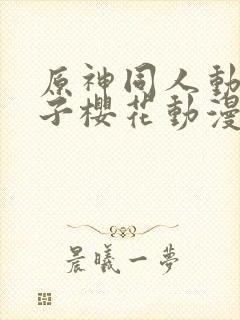 原神同人動
子櫻花動漫
晨曦一夢